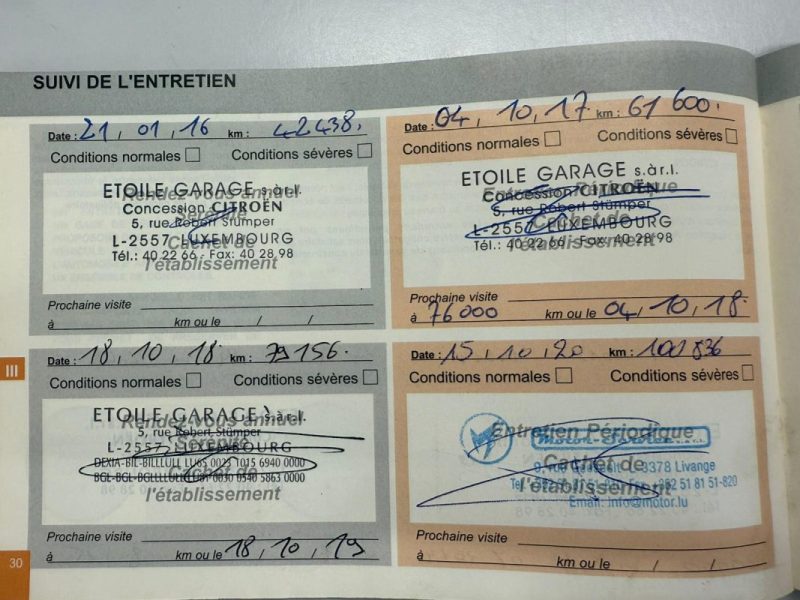 SUIVI DE L'ENTRETIEN
Date : 21, 01, 16 km : 42438.
Conditions normales Conditions sévères
Rendez-vous annuel
Cachet de
l'établissement
ETOILE GARAGE s.à r.l.
Concession CITROËN
5, rue Robert Stumper
L-2557 LUXEMBOURG
Tél.: 40 22 66 - Fax: 40 28 98
Prochaine visite
à km ou le / /
Date : 04, 10, 17. km : 61 600.
Conditions normales Conditions sévères
Entretien Périodique
Cachet de
l'établissement
ETOILE GARAGE s.àr.l.
Concession CITROËN
5, rue Robert Stümper
L-2557 LUXEMBOURG
Tél.: 40 22 66 - Fax: 40 28 98
Prochaine visite
à 76000 km ou le 04/10,18.
III
Date : 18, 10, 18. km : 79156.
Conditions normales Conditions sévères
Rendez-vous annuel
Cachet de
l'établissement
ETOILE GARAGE s.àr.l.
5, rue Robert Stümper
L-2557 LUXEMBOURG
Prochaine visite
à km ou le 18, 10, 19
Date : 15, 10, 20. km :
Conditions normales Conditions sévères
Entretien Périodique
Cachet de
l'établissement
L-3378 Livange
Email: info@motor.lu
Prochaine visite
à km ou le / /
30